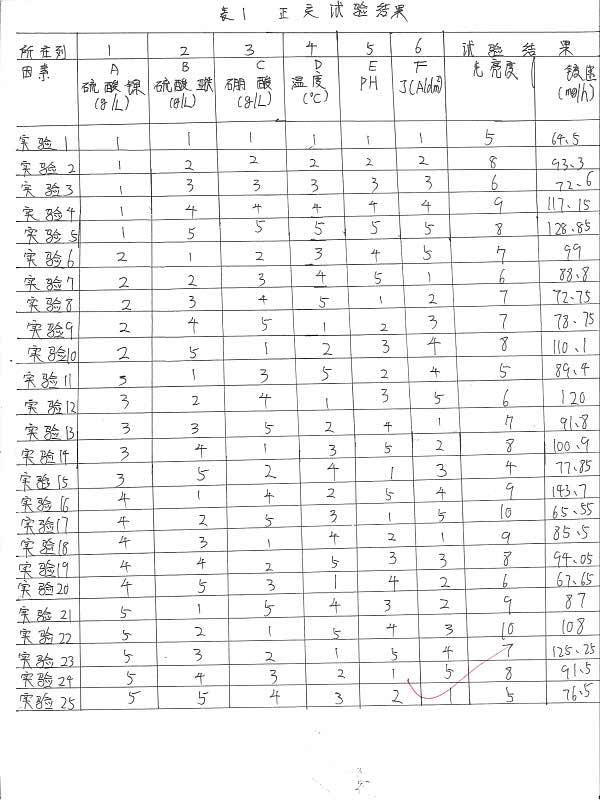 表1 正交试验结果
所在列 1 2 3 4 5 6 试验结果
因素 A 硫酸镍 (g/L) B 硫酸铁 (g/L) C 硼酸 (g/L) D 温度 (℃) E PH F J(A/dm²) 光亮度 镀速 (mg/h)
实验1 1 1 1 1 1 1 5 64.5
实验2 1 2 2 2 2 2 8 93.3
实验3 1 3 3 3 3 3 6 72.6
实验4 1 4 4 4 4 4 9 117.15
实验5 1 5 5 5 5 5 8 128.85
实验6 2 1 2 3 4 5 7 99
实验7 2 2 3 4 5 1 6 88.8
实验8 2 3 4 5 1 2 7 72.75
实验9 2 4 5 1 2 3 7 78.75
实验10 2 5 1 2 3 4 8 110.1
实验11 3 1 3 5 2 4 5 89.4
实验12 3 2 4 1 3 5 6 120
实验13 3 3 5 2 4 1 7 91.8
实验14 3 4 1 3 5 2 8 100.9
实验15 3 5 2 4 1 3 4 77.85
实验16 4 1 4 2 5 4 9 143.7
实验17 4 2 5 3 1 5 10 65.55
实验18 4 3 1 4 2 1 9 85.5
实验19 4 4 2 5 3 3 8 94.05
实验20 4 5 3 1 4 2 6 67.65
实验21 5 1 5 4 3 2 9 87
实验22 5 2 1 5 4 3 10 108
实验23 5 3 2 1 5 4 7 125.25
实验24 5 4 3 2 1 5 8 91.5
实验25 5 5 4 3 2 1 5 76.5